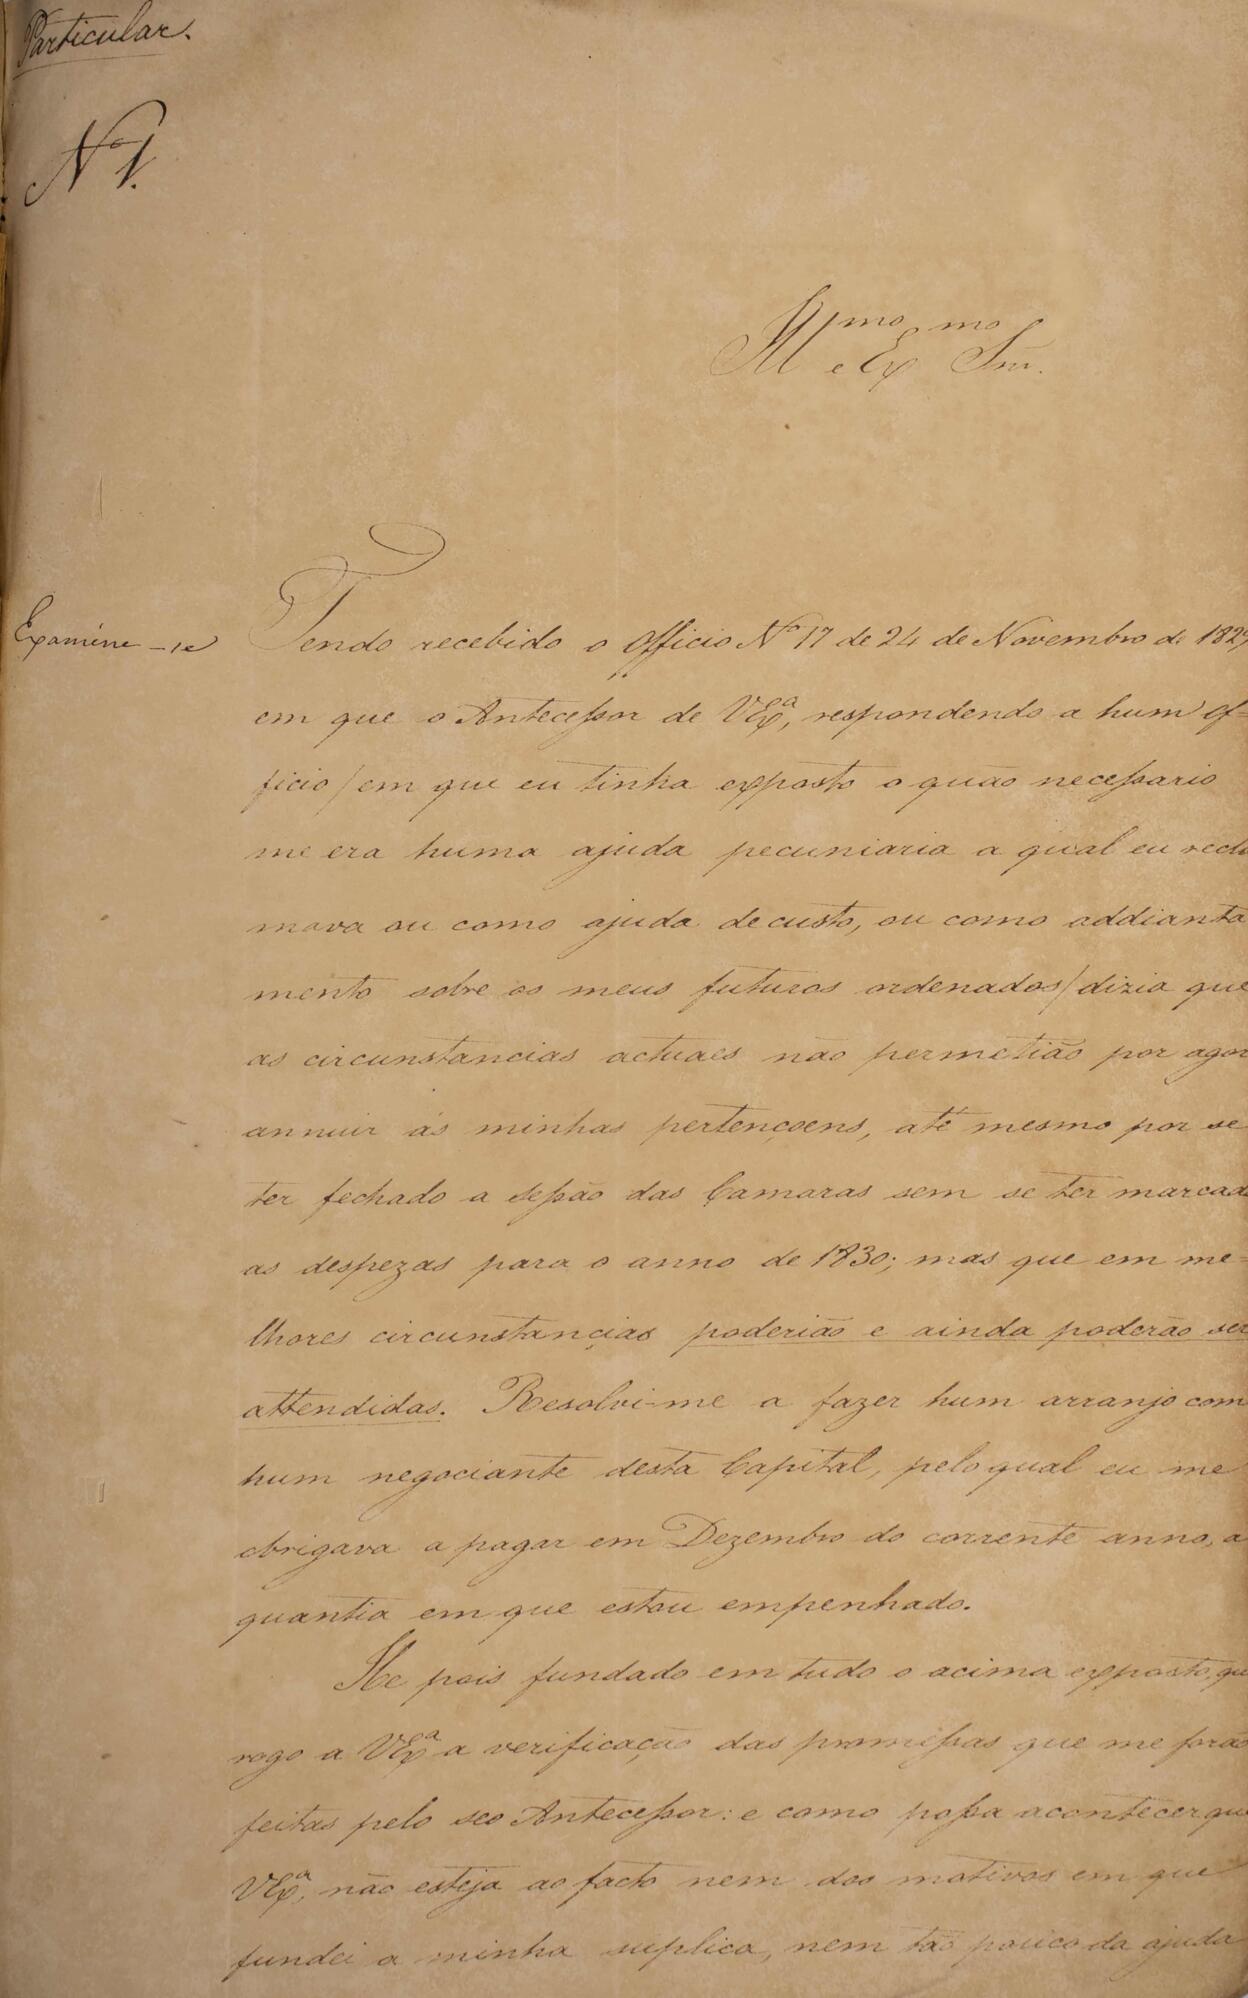 Particular.
Nº 1.
Illmo e Exmo Snr.
Examine-se
Tendo recebido o Officio Nº 17 de 24 de Novembro de 1829
em que o Antecessor de VExª, respondendo a hum of=
ficio/em que eu tinha exposto o quão necessario
me era huma ajuda pecuniaria a qual eu recla
mava ou como ajuda de custo, ou como addianta
mento sobre os meus futuros ordenados/dizia que
as circunstancias actuaes não permetião por agor
annuir ás minhas pertençoens, até mesmo por se
ter fechado a sessão das Camaras sem se ter marcad
as despezas para o anno de 1830; mas que em me=
lhores circunstançias poderião e ainda poderão ser
attendidas. Resolvi-me a fazer hum arranjo com
hum negociante desta Capital, pelo qual eu me
obrigava a pagar em Dezembro do corrente anno, a
quantia em que estou empenhado.
He pois fundado em tudo o acima exposto, qu
rogo a VExª a verificação das promessas que me forão
feitas pelo seo Antecessor: e como possa acontecer que
VExª, não esteja ao facto nem dos motivos em que
fundei a minha suplica, nem tão pouco da ajuda